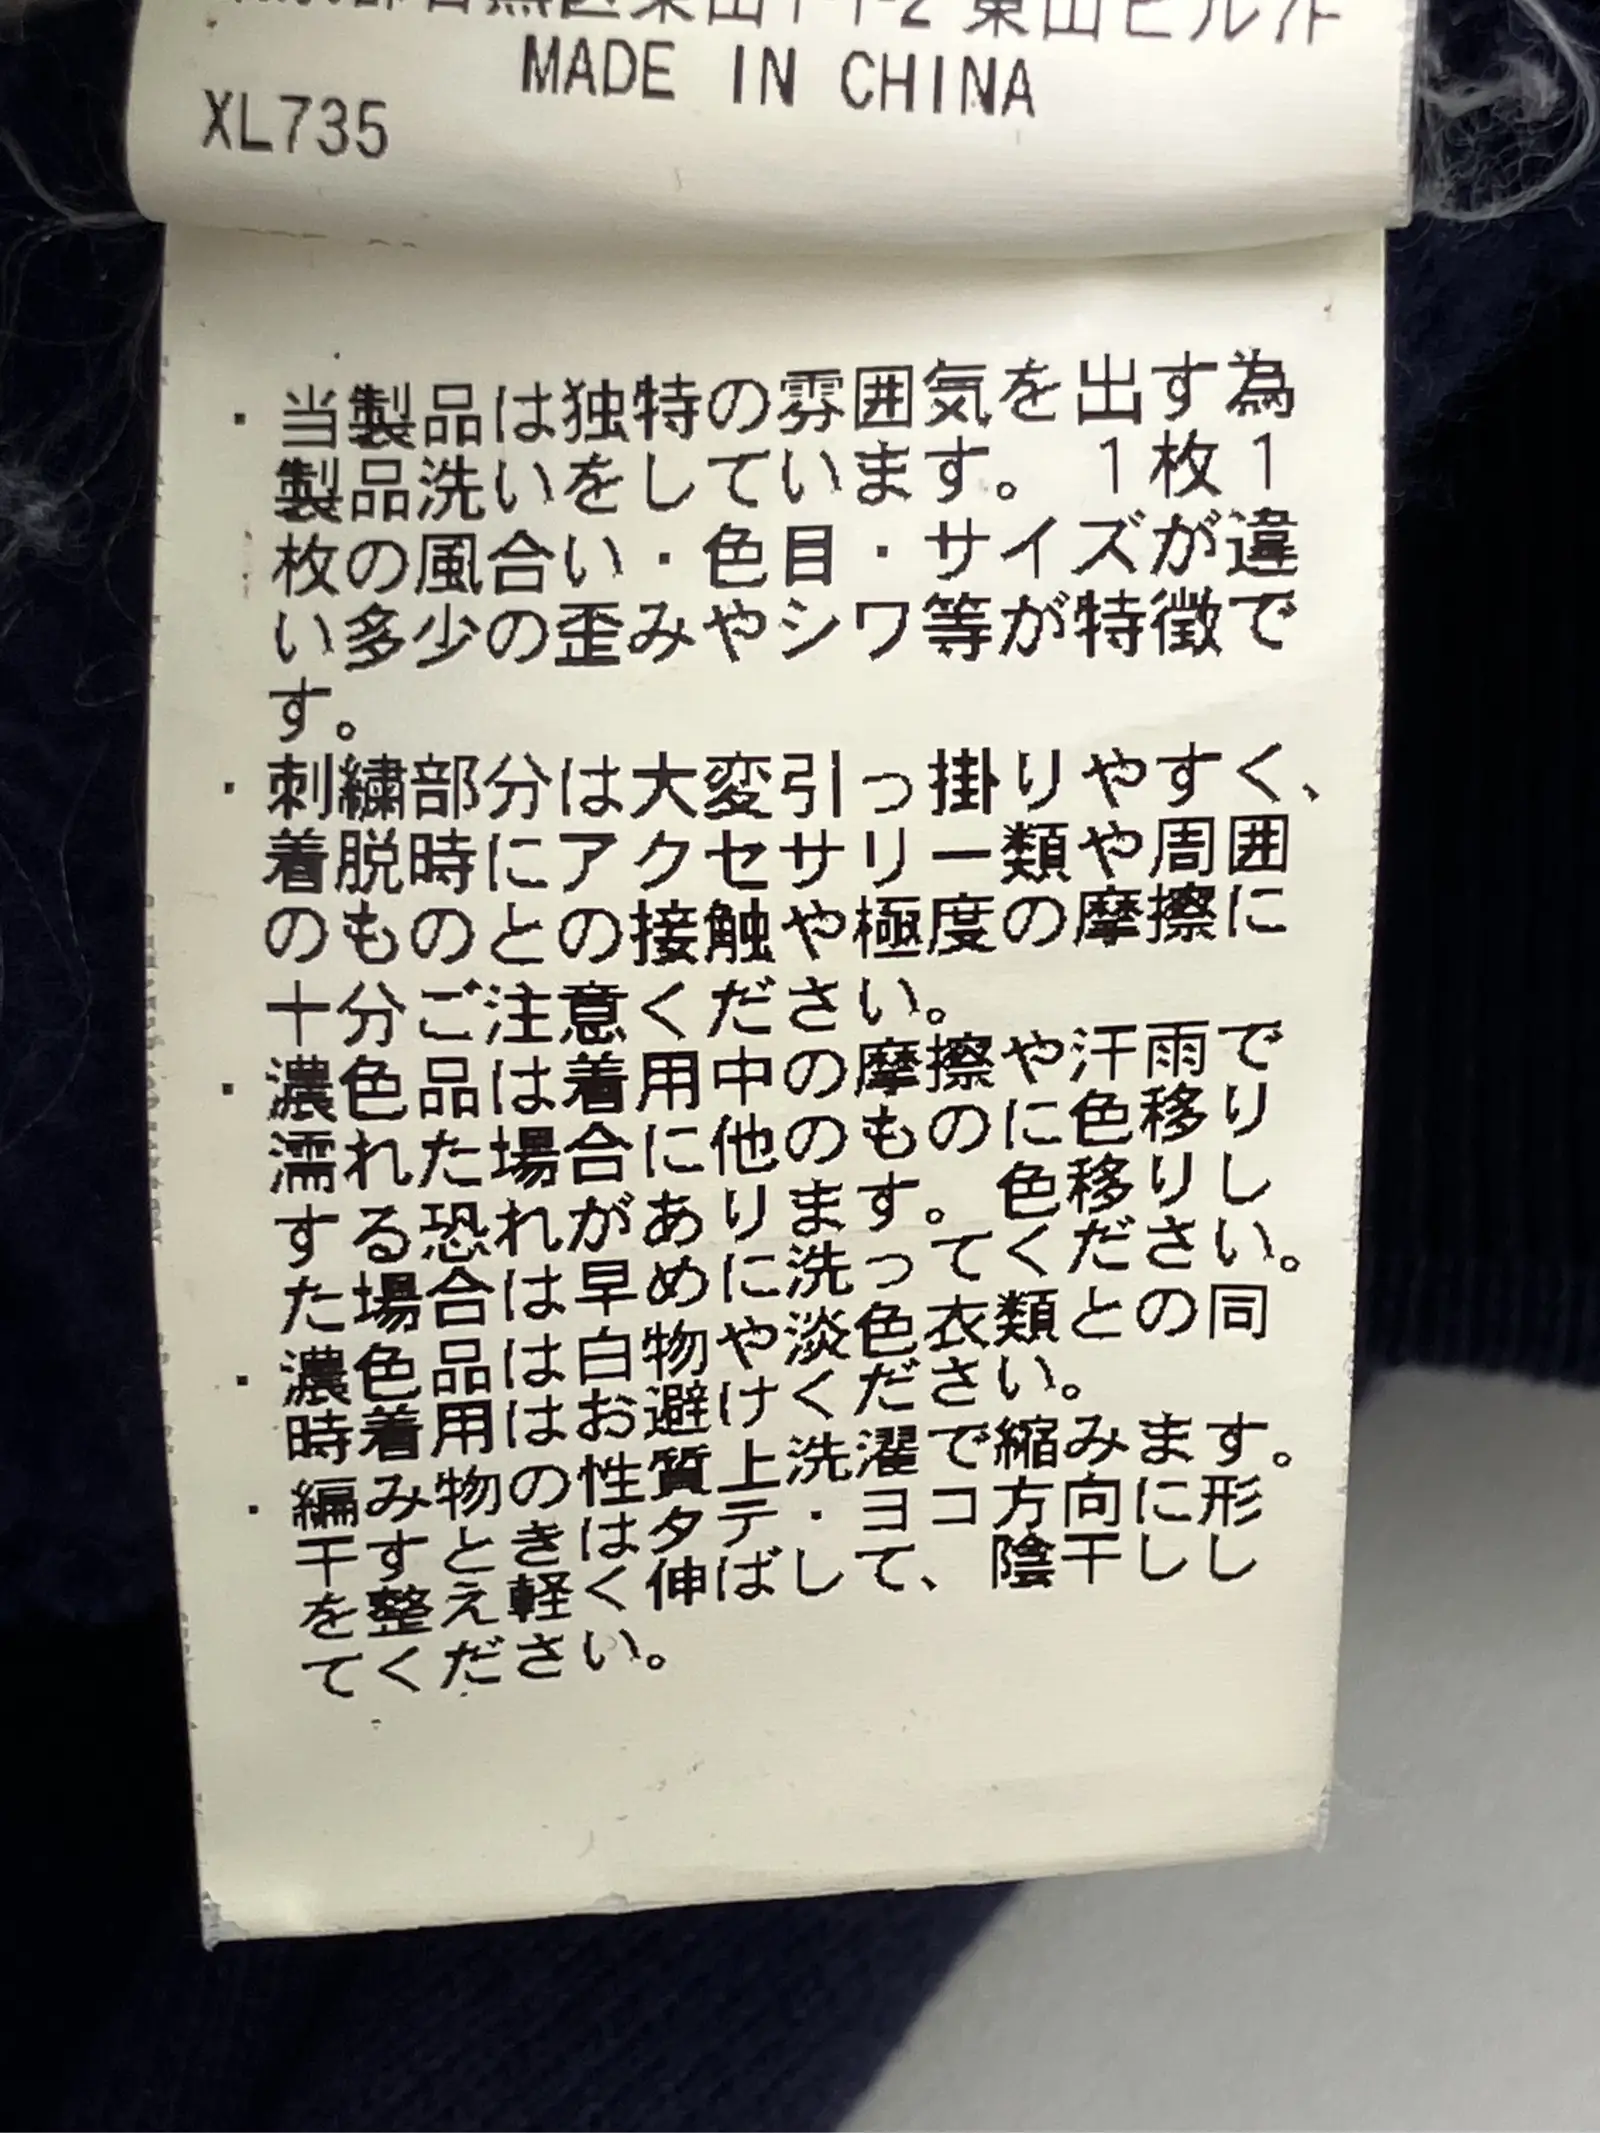 東山1-1-2 東山ビル7F
MADE IN CHINA
XL735
・当製品は独特の雰囲気を出す為
製品洗いをしています。1枚1
枚の風合い・色目・サイズが違
い多少の歪みやシワ等が特徴で
す。
・刺繍部分は大変引っ掛りやすく、
着脱時にアクセサリー類や周囲
のものとの接触や極度の摩擦に
十分ご注意ください。
・濃色品は着用中の摩擦や汗雨で
濡れた場合に他のものに色移り
する恐れがあります。色移りし
た場合は早めに洗ってください。
・濃色品は白物や淡色衣類との同
時着用はお避けください。
・編み物の性質上洗濯で縮みます。
干すときはタテ・ヨコ方向に形
を整え軽く伸ばして、陰干しし
てください。